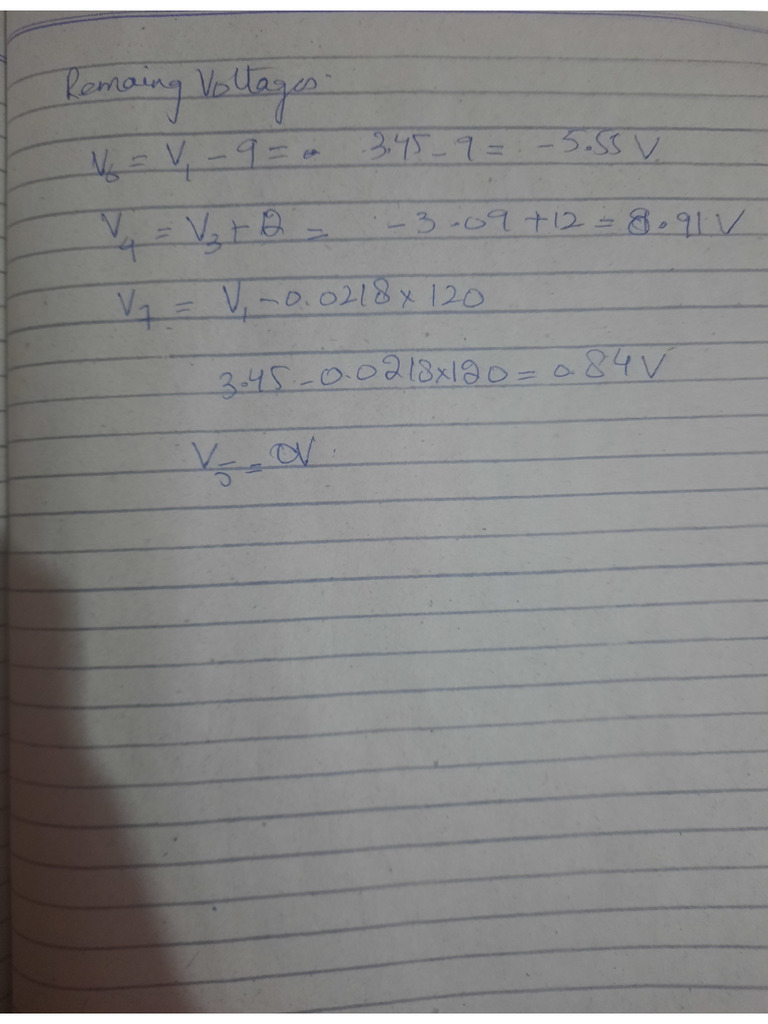 Remaing Voltages.
V6 = V1 - 9 = 3.45 - 9 = -5.55 V
V4 = V3 + 12 = -3.09 + 12 = 8.91 V
V7 = V1 - 0.0218 × 120
3.45 - 0.0218×120 = 0.84 V
V5 = 0V